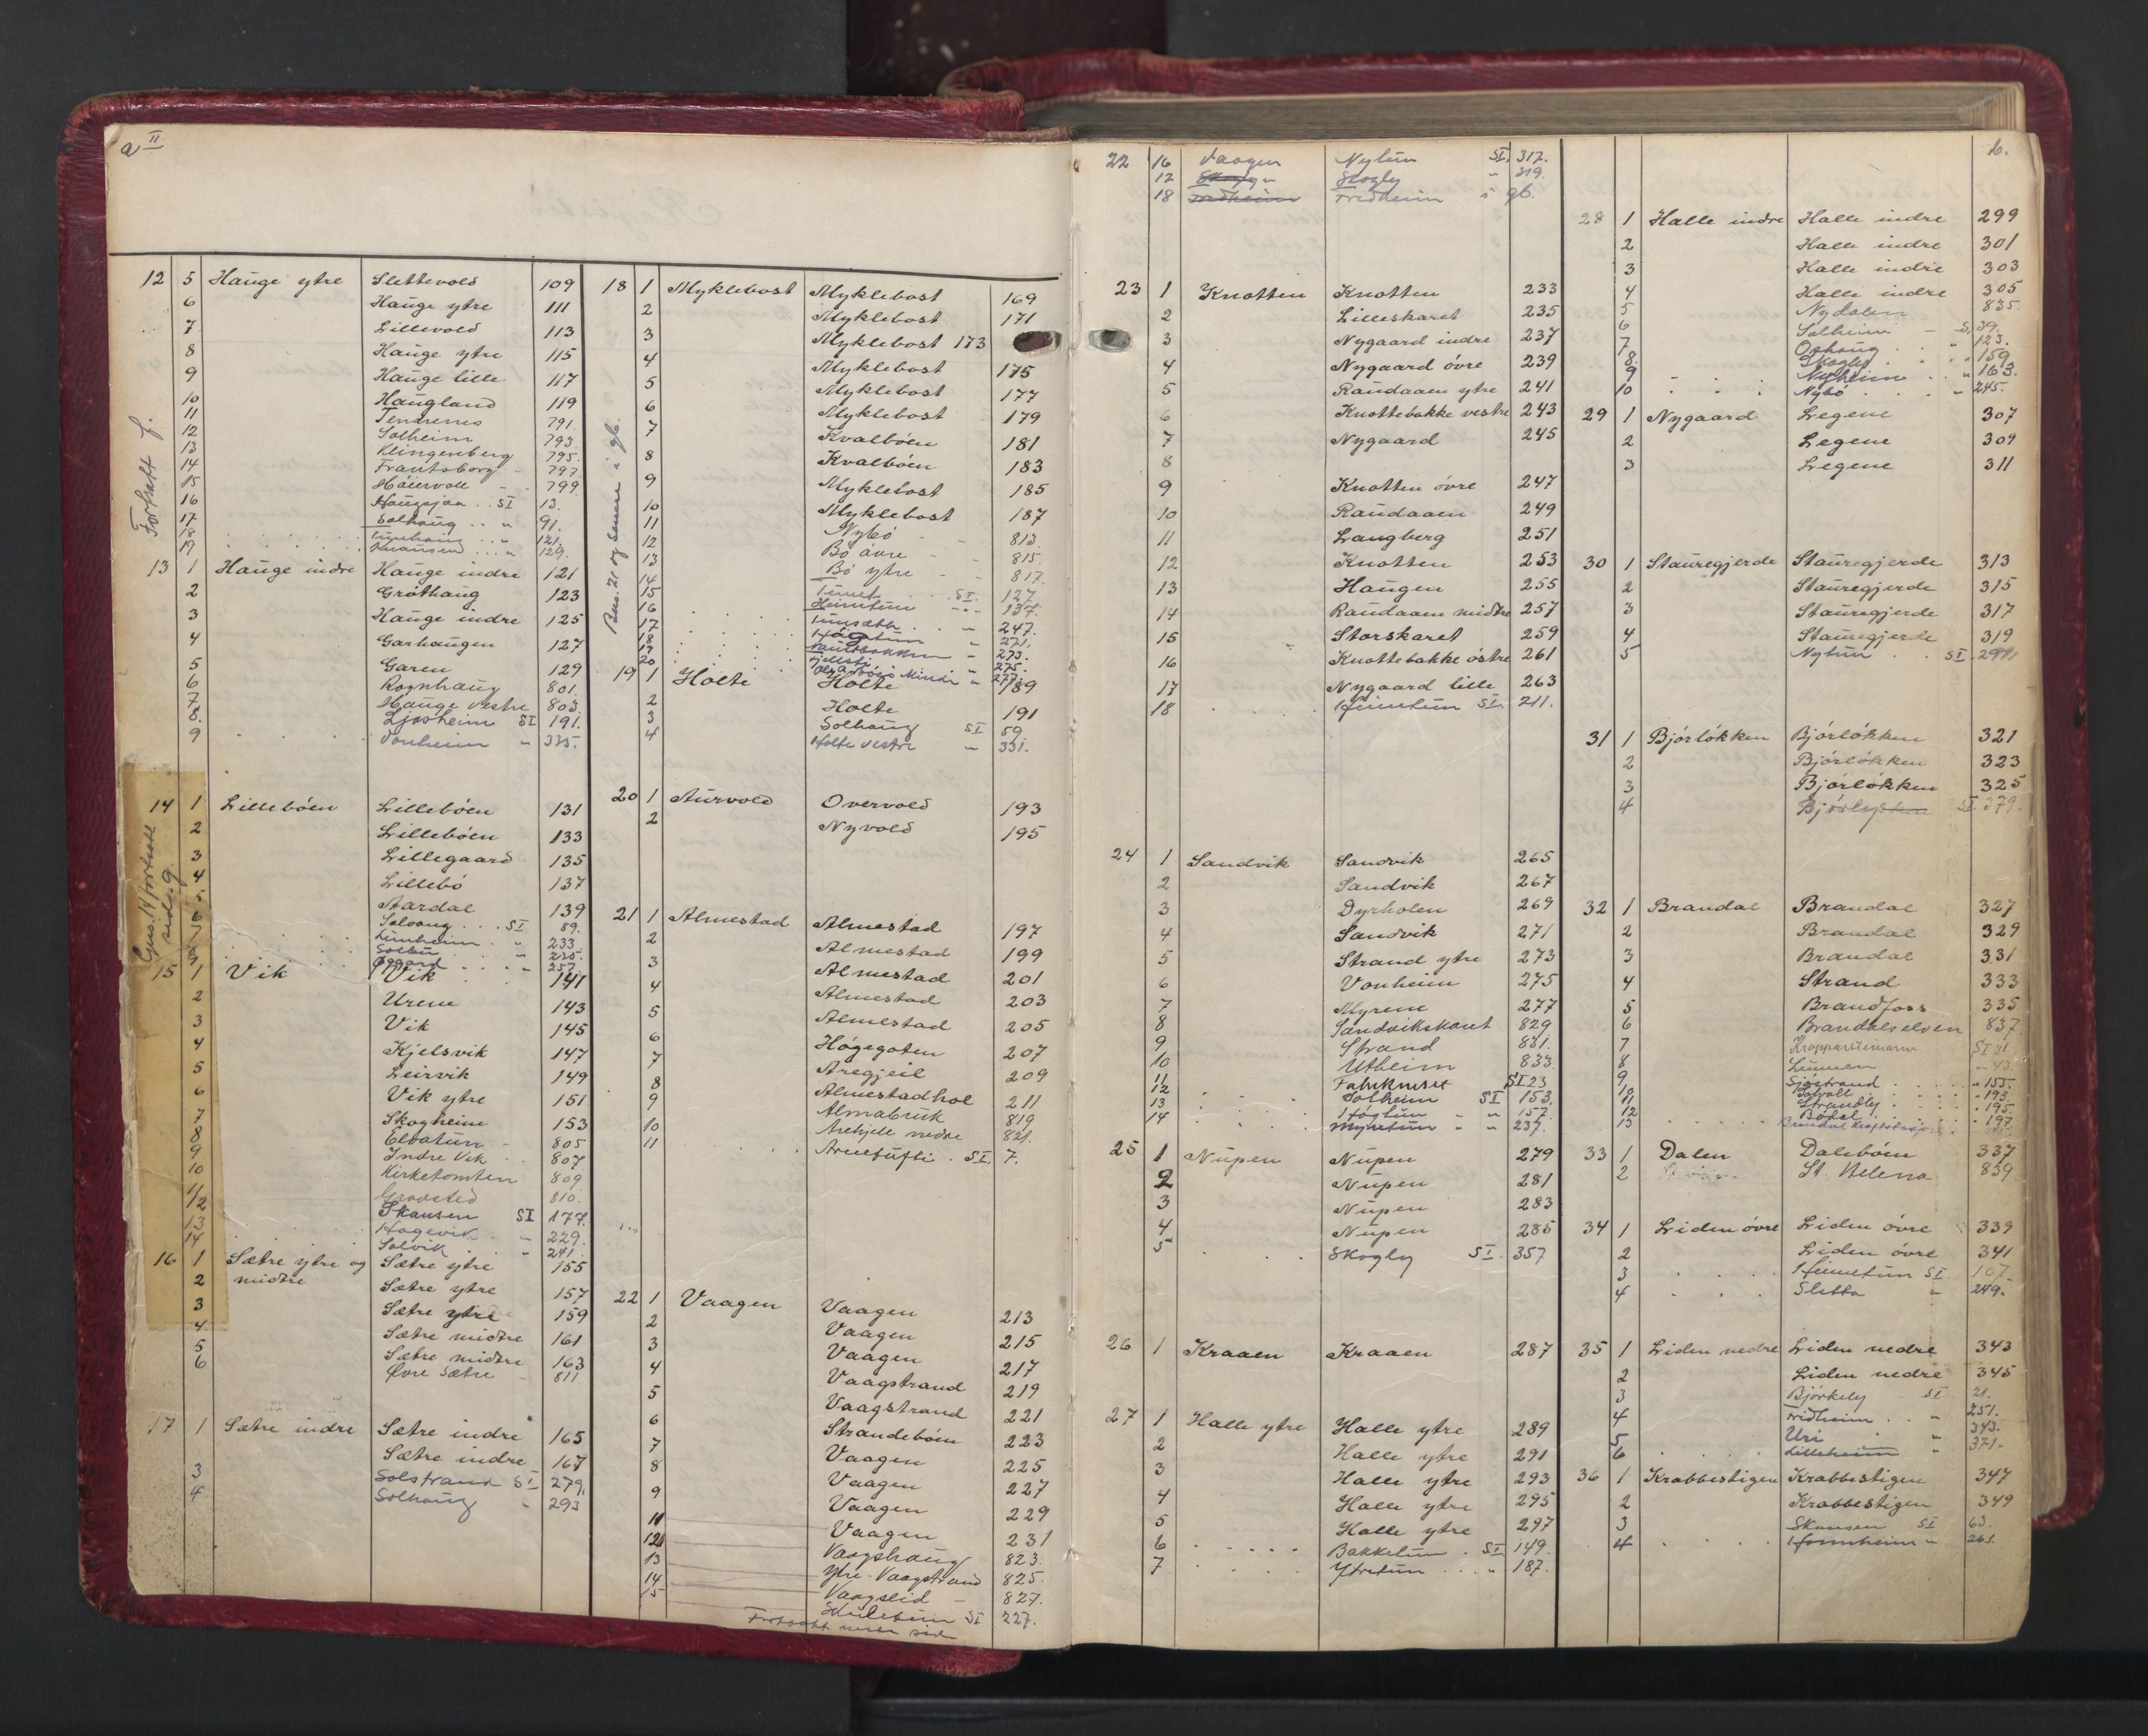 a II
12 5 Hauge ytre Slettevold 109
6 Hauge ytre 111
7 Lillevold 113
8 Hauge ytre 115
9 Hauge lille 117
10 Haugland 119
11 Tendrenes 791.
12 Solheim 793.
13 Klingenberg 795.
14 Frantsborg - 797
15 Håiervoll - 799
16 SI 13.
17 Solhaug " 91.
18 " 121.
19 " 129.
Fortsatt f.
13 1 Hauge indre Hauge indre 121
2 Gróthaug 123
3 Hauge indre 125
4 Garhaugen 127
5 Garen 129
6 Rognhaug 801.
7 Hauge vestre 803.
8. Ljosheim SI 191.
9 Vonheim " 335.
14 1 Lillebóen Lillebóen 131
2 Lillebóen 133
3 Lillegaard 135
4 Lillebó 137
5 Aardal 139
6 SI 89.
7 " 233
8 Soltun " 235.
9 " 257
15 1 Vik Vik 141
2 Urene 143
3 Vik 145
4 Kjelsvik 147
5 Leirvik 149
6 Vik ytre 151
7 Skogheim 153
8 Elvatun - 805
9 Indre Vik 807
10 Kirketomten 809
11 810.
12 Skansen SI 177.
13 Hagevik " 229.
14 Solvik " 241.
16 1 Sætre ytre og midtre Sætre ytre 155
2 Sætre ytre 157
3 Sætre ytre 159
4 Sætre midtre 161
5 Sætre midtre 163
6 Øvre Sætre - 811
17 1 Sætre indre Sætre indre 165
Sætre indre 167
3 Solstrand SI 279.
4 Solhaug " 293
Bus. 21 og senere i gb.
18 1 Myklebost Myklebost 169
2 Myklebost 171
3 Myklebost 173
4 Myklebost 175
5 Myklebost 177
6 Myklebost 179
7 Kvalbóen 181
8 Kvalbóen 183
9 Myklebost 185
10 Myklebost 187
11 Nybó - 813.
12 Bó óvre - 815.
13 Bó ytre - 817.
14 Tunet SI. 127
15 137.
16 " 247.
17 " 271.
18 " 273.
19 " 275.
20 Minde " 277.
19 1 Holte Holte 189
2 Holte 191
3 Solhaug SI 59
4 Holte vestre " 331.
20 1 Aurvold Overvold 193
2 Nyvold 195
21 1 Almestad Almestad 197
2 Almestad 199
3 Almestad 201
4 Almestad 203
5 Almestad 205
6 Hógegoten 207
7 Aregjeil 209
8 Almestadhol 211
9 Almabruk 819
10 Arehjell nedre 821.
11 Arnetufti SI. 7.
22 1 Vaagen Vaagen 213
2 Vaagen 215
3 Vaagen 217
4 Vaagstrand 219
5 Vaagstrand 221
6 Strandebóen 223
7 Vaagen 225
8 Vaagen 227
9 Vaagen 229
11 Vaagen 231
12 Vaagshaug 823.
13 Ytre-Vaagstrand 825.
14 Vaagslid - 827.
15 SI 227.
Fortsatt neste side
22 16 Vaagen Nytun SI. 317.
12 Skogly " 319.
18 Fredheim Fredheim i gb.
23 1 Knotten Knotten 233
2 Lilleskaret 235
3 Nygaard indre 237
4 Nygaard óvre 239
5 Raudaaen ytre 241
6 Knottebakke vestre 243
7 Nygaard 245
8
9 Knotten óvre 247
10 Raudaaen 249
11 Langberg 251
12 Knotten 253
13 Haugen 255
14 Raudaaen midtre 257
15 Storskaret 259
16 Knottebakke óstre 261
17 Nygaard lille 263
18 Heimtun SI. 211.
24 1 Sandvik Sandvik 265
2 Sandvik 267
3 Dyrholen 269
4 Sandvik 271
5 Strand ytre 273
6 Vonheim 275
7 Myrene 277
8 Sandvikskaret 829
9 Strand 831.
10 Utheim 833.
11 Fabriknuset SI 23
12 Solheim SI 153.
13 Hógtun " 157.
14 Myretun " 237.
25 1 Nupen Nupen 279
2 Nupen 281
3 Nupen 283
4 Nupen 285
5 Skogly SI. 357
26 1 Kraaen Kraaen 287
27 1 Halle ytre Halle ytre 289
2 Halle ytre 291
3 Halle ytre 293
4 Halle ytre 295
5 Halle ytre 297
6 Bakketun SI 149.
7 Ytretun " 187.
b.
28 1 Halle indre Halle indre 299
2 Halle indre 301
3 Halle indre 303
4 Halle indre 305
5 Nydalen 835.
6 Solheim - S. 39.
7 Ophaug " 123.
8. Skogly " 159
9 Nyheim " 163.
10 Nybó " 245.
29 1 Nygaard Legene 307
2 Legene 309
3 Legene 311
30 1 Stauregjerde Stauregjerde 313
2 Stauregjerde 315
3 Stauregjerde 317
4 Stauregjerde 319
5 Nytun SI
31 1 Bjórlókken Bjórlókken 321
2 Bjórlókken 323
3 Bjórlókken 325
4 SI. 379.
32 1 Brandal Brandal 327
2 Brandal 329
3 Brandal 331
4 Strand 333
5 Brandfoss 335
6 Brandalselven 837
7 SI 31
8 " 43.
9 Sjóstrand " 155.
10 Solvoll " 193.
11 Strandly " 195.
12 Bódal " 197
13 Brandal
33 1 Dalen Dalebóen 337
2 St. Helena 839
34 1 Liden óvre Liden óvre 339
2 Liden óvre 341
3 Heimetun SI. 107.
4 Sletta " 249.
35 1 Liden nedre Liden nedre 343
2 Liden nedre 345
3 Bjórkely SI 21.
4 Fridheim " 251.
5 Uri " 343.
6 Lilleheim " 371.
36 1 Krabbestigen Krabbestigen 347
2 Krabbestigen 349
3 Skansen SI 63.
4 " 261.